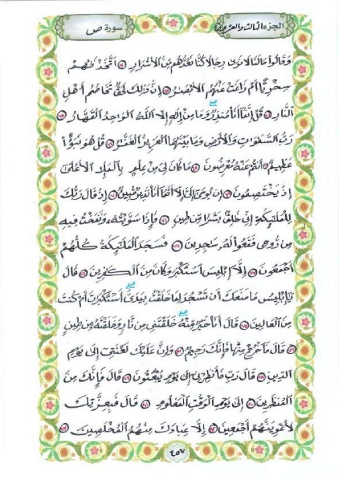 الجزء الثالث والعشرون
سورة ص
وَقَالُوا۟ مَا لَنَا لَا نَرَىٰ رِجَالًا كُنَّا نَعُدُّهُم مِّنَ ٱلْأَشْرَارِ ٦٢ أَتَّخَذْنَٰهُمْ
سِخْرِيًّا أَمْ زَاغَتْ عَنْهُمُ ٱلْأَبْصَٰرُ ٦٣ إِنَّ ذَٰلِكَ لَحَقٌّ تَخَاصُمُ أَهْلِ
ٱلنَّارِ ٦٤ قُلْ إِنَّمَآ أَنَا۠ مُنذِرٌ وَمَا مِنْ إِلَٰهٍ إِلَّا ٱللَّهُ ٱلْوَٰحِدُ ٱلْقَهَّارُ ٦٥
رَبُّ ٱلسَّمَٰوَٰتِ وَٱلْأَرْضِ وَمَا بَيْنَهُمَا ٱلْعَزِيزُ ٱلْغَفَّٰرُ ٦٦ قُلْ هُوَ نَبَؤٌا۟
عَظِيمٌ ٦٧ أَنتُمْ عَنْهُ مُعْرِضُونَ ٦٨ مَا كَانَ لِىَ مِنْ عِلْمٍۭ بِٱلْمَلَإِ ٱلْأَعْلَىٰٓ
إِذْ يَخْتَصِمُونَ ٦٩ إِن يُوحَىٰٓ إِلَىَّ إِلَّآ أَنَّمَآ أَنَا۠ نَذِيرٌ مُّبِينٌ ٧٠ إِذْ قَالَ رَبُّكَ
لِلْمَلَٰٓئِكَةِ إِنِّى خَٰلِقٌۢ بَشَرًا مِّن طِينٍ ٧١ فَإِذَا سَوَّيْتُهُۥ وَنَفَخْتُ فِيهِ
مِن رُّوحِى فَقَعُوا۟ لَهُۥ سَٰجِدِينَ ٧٢ فَسَجَدَ ٱلْمَلَٰٓئِكَةُ كُلُّهُمْ
أَجْمَعُونَ ٧٣ إِلَّآ إِبْلِيسَ ٱسْتَكْبَرَ وَكَانَ مِنَ ٱلْكَٰفِرِينَ ٧٤ قَالَ
يَٰٓإِبْلِيسُ مَا مَنَعَكَ أَن تَسْجُدَ لِمَا خَلَقْتُ بِيَدَىَّ أَسْتَكْبَرْتَ أَمْ كُنتَ
مِنَ ٱلْعَالِينَ ٧٥ قَالَ أَنَا۠ خَيْرٌ مِّنْهُ خَلَقْتَنِى مِن نَّارٍ وَخَلَقْتَهُۥ مِن طِينٍ
٧٦ قَالَ فَٱخْرُجْ مِنْهَا فَإِنَّكَ رَجِيمٌ ٧٧ وَإِنَّ عَلَيْكَ لَعْنَتِىٓ إِلَىٰ يَوْمِ
ٱلدِّينِ ٧٨ قَالَ رَبِّ فَأَنظِرْنِىٓ إِلَىٰ يَوْمِ يُبْعَثُونَ ٧٩ قَالَ فَإِنَّكَ مِنَ
ٱلْمُنظَرِينَ ٨٠ إِلَىٰ يَوْمِ ٱلْوَقْتِ ٱلْمَعْلُومِ ٨١ قَالَ فَبِعِزَّتِكَ
لَأُغْوِيَنَّهُمْ أَجْمَعِينَ ٨٢ إِلَّا عِبَادَكَ مِنْهُمُ ٱلْمُخْلَصِينَ ٨٣
٤٥٧